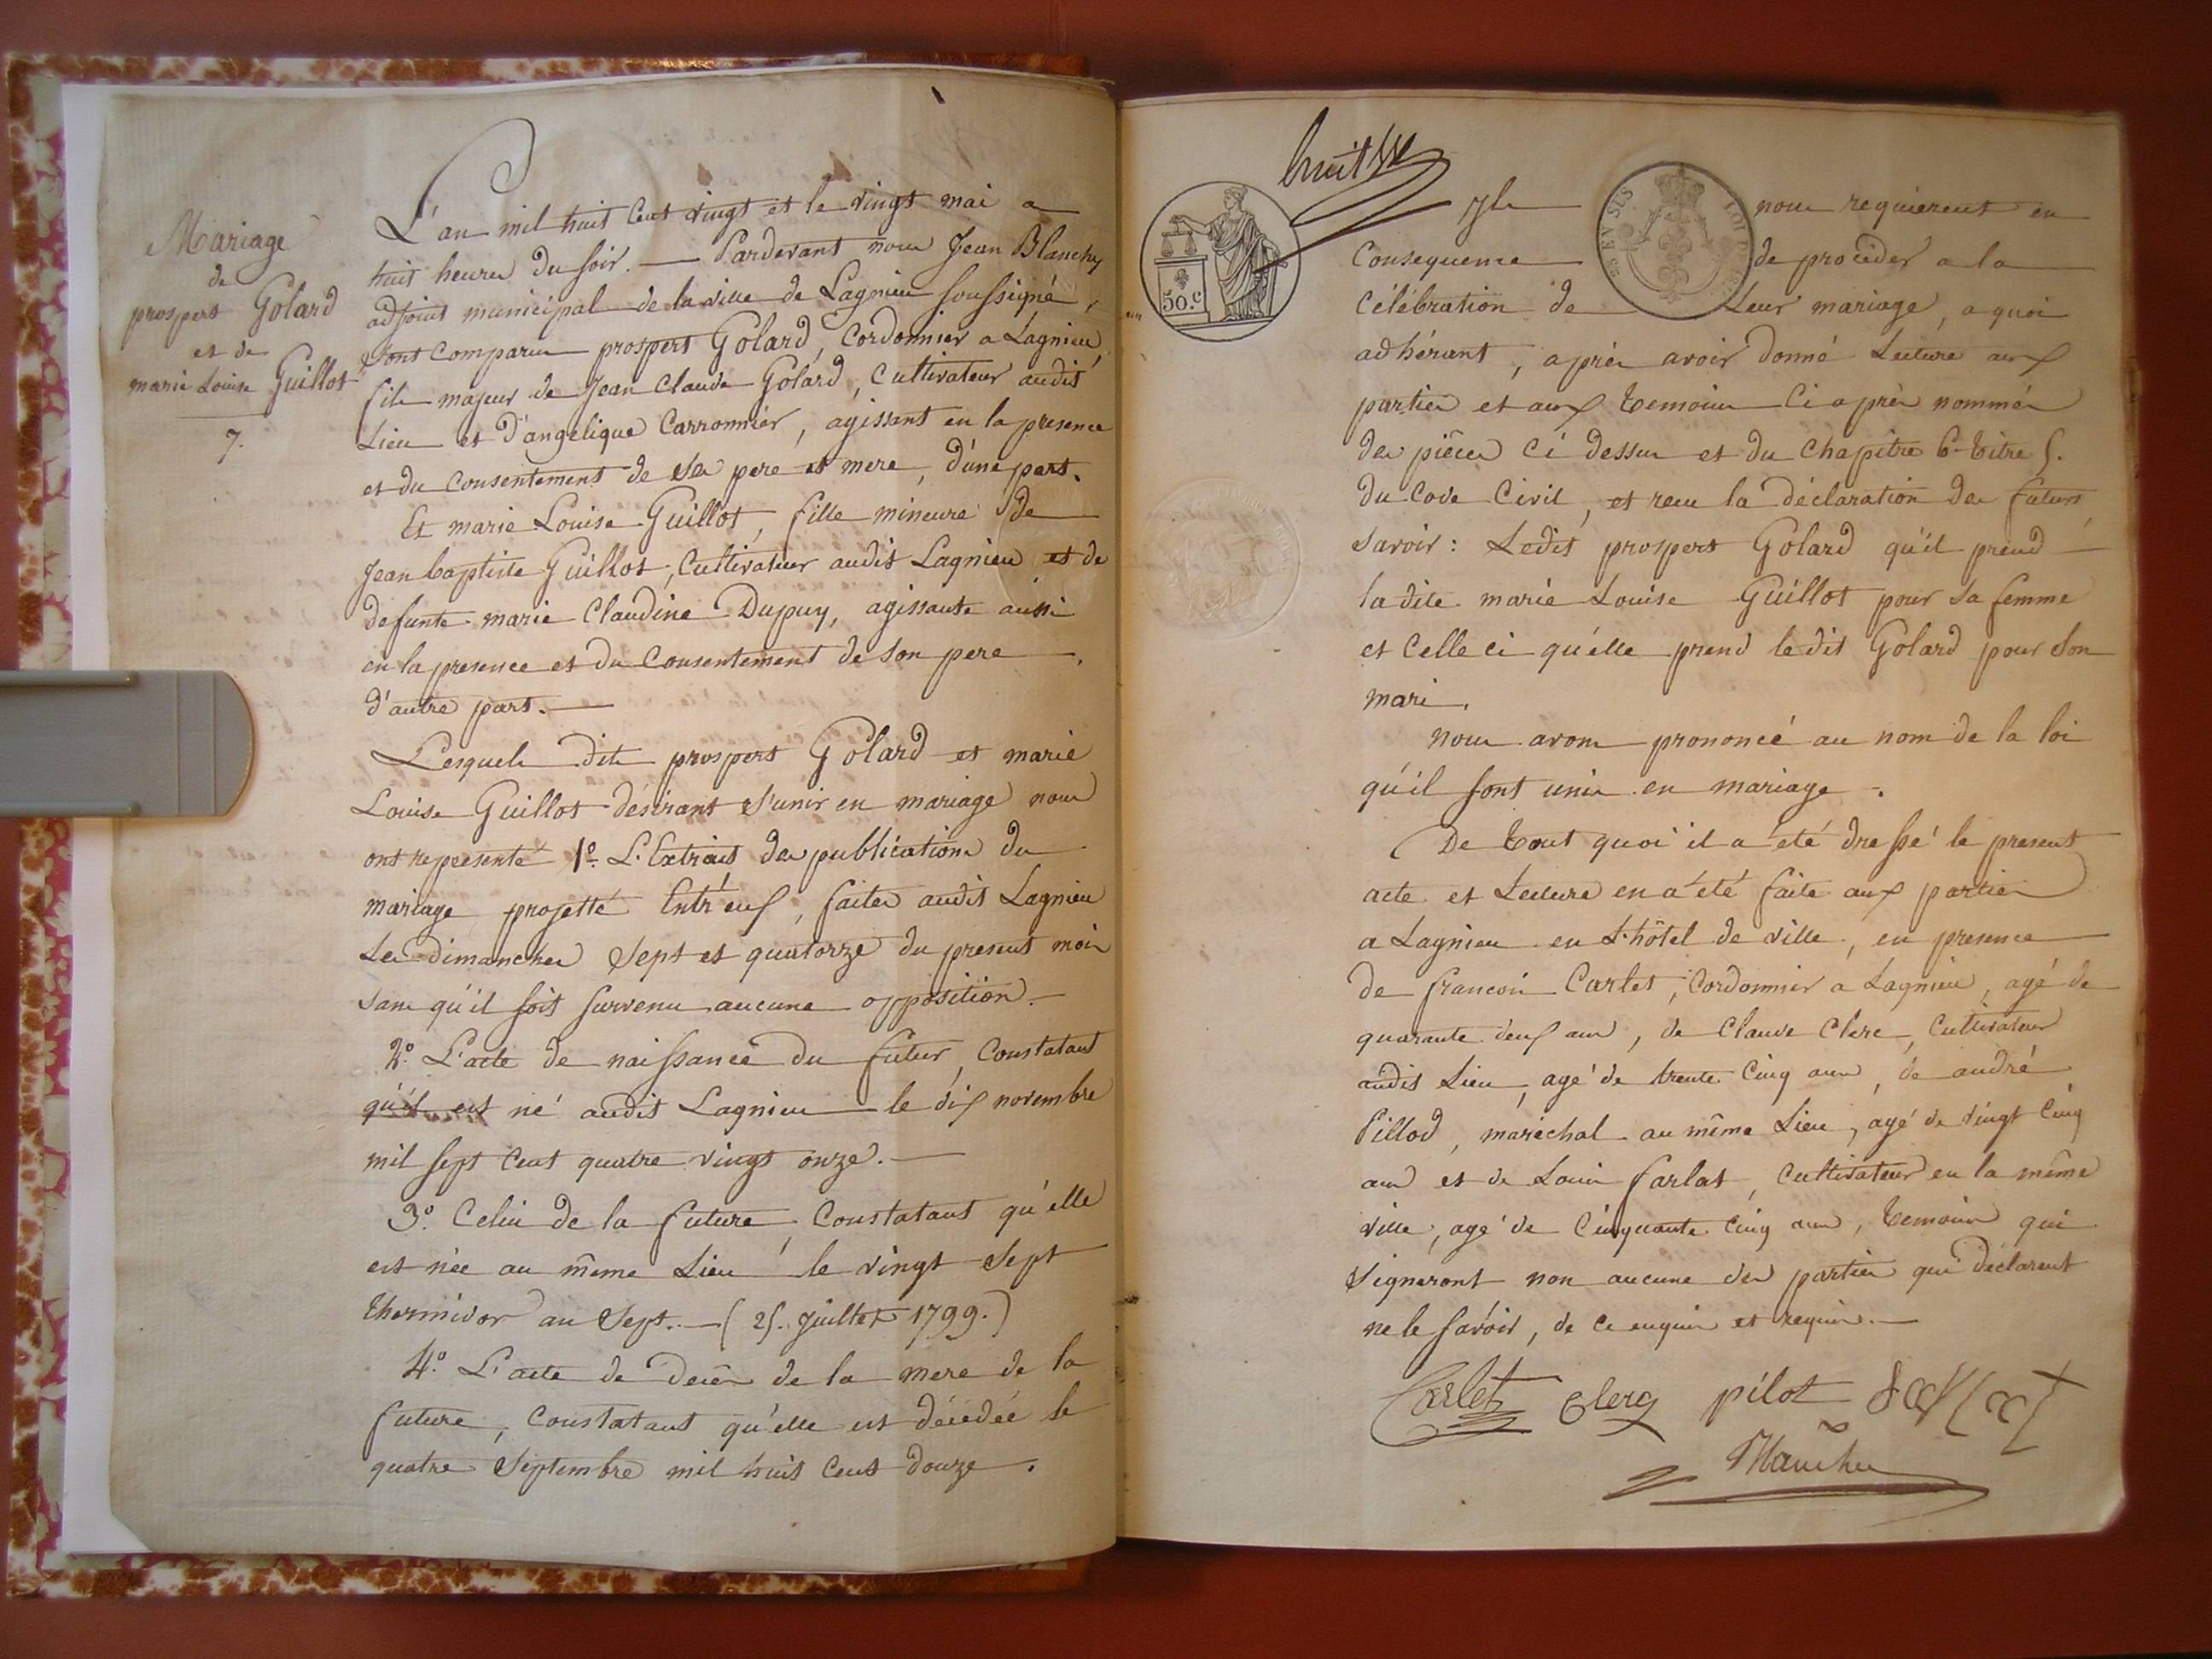 Mariage
de
prospert Golard
et de
marie Louise Guillot
7.
L'an mil huit Cent vingt et le vingt mai a
huit heures du soir. — Pardevant nous Jean Blanchy
adjoint municipal de la ville de Lagnieu soussigné,
sont Comparus prospert Golard, Cordonnier a Lagnieu,
fils majeur de Jean Claude Golard, Cultivateur audit
Lieu et d'angelique Carronnier, agissant en la presence
et du Consentement de ses pere et mere, d'une part.
Et marie Louise Guillot, fille mineure de
Jean baptiste Guillot, Cultivateur audit Lagnieu et de
defunte marie Claudine Dupuy, agissante aussi
en la presence et du Consentement de son pere,
d'autre part. —
Lesquels dits prospert Golard et marie
Louise Guillot désirant s'unir en mariage nous
ont representé 1o. L'Extrait des publications du
mariage projetté Entr'eux, faites audit Lagnieu
Les dimanches Sept et quatorze du present mois
sans qu'il soit survenu aucune opposition. —
2o. L'acte de naissance du futur, Constatant
qu'il est né audit Lagnieu le dix novembre
mil sept Cent quatre vingt onze. —
3o. Celui de la future, Constatant qu'elle
est née au même Lieu le vingt Sept
thermidor an Sept. — (25. Juillet 1799.)
4o. L'acte de decès de la mere de la
future, Constatant qu'elle est décedée le
quatre Septembre mil huit Cent douze.
huit
50.c
Ils nous requierent en
Consequence de procèder a la
Célébration de Leur mariage, a quoi
adhérant, après avoir donné Lecture aux
parties et aux temoins Ci après nommés
des pièces Ci dessus et du Chapitre 6 - titre 5.
du Code Civil, et recu la déclaration des futurs
savoir: Ledit prospert Golard qu'il prend
la dite marie Louise Guillot pour sa femme
et Celle ci qu'elle prend le dit Golard pour son
mari.
nous avons prononcé au nom de la loi
qu'il sont unis en mariage.
De tout quoi il a été dressé le present
acte et Lecture en a été faite aux parties
a Lagnieu en L'hôtel de ville, en presence
de francois Carlet, Cordonnier a Lagnieu, agé de
quarante deux ans, de Claude Clerc, Cultivateur
audit Lieu, agé de trente Cinq ans, de andré
Pillod, maréchal au même Lieu, agé de vingt Cinq
ans et de Louis farlat, Cultivateur en la même
ville, agé de Cinquante Cinq ans, temoins qui
signeront non aucune des parties qui déclarent
ne le savoir, de ce enquis et requis. —
Carlet Clerg pilot
Blanchy